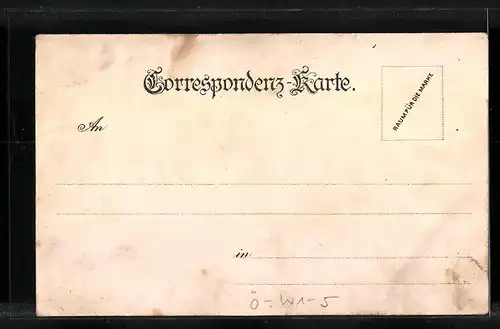 Correspondenz-Karte.
RAUM FÜR DIE MARKE
An
in
Ö-W1-5